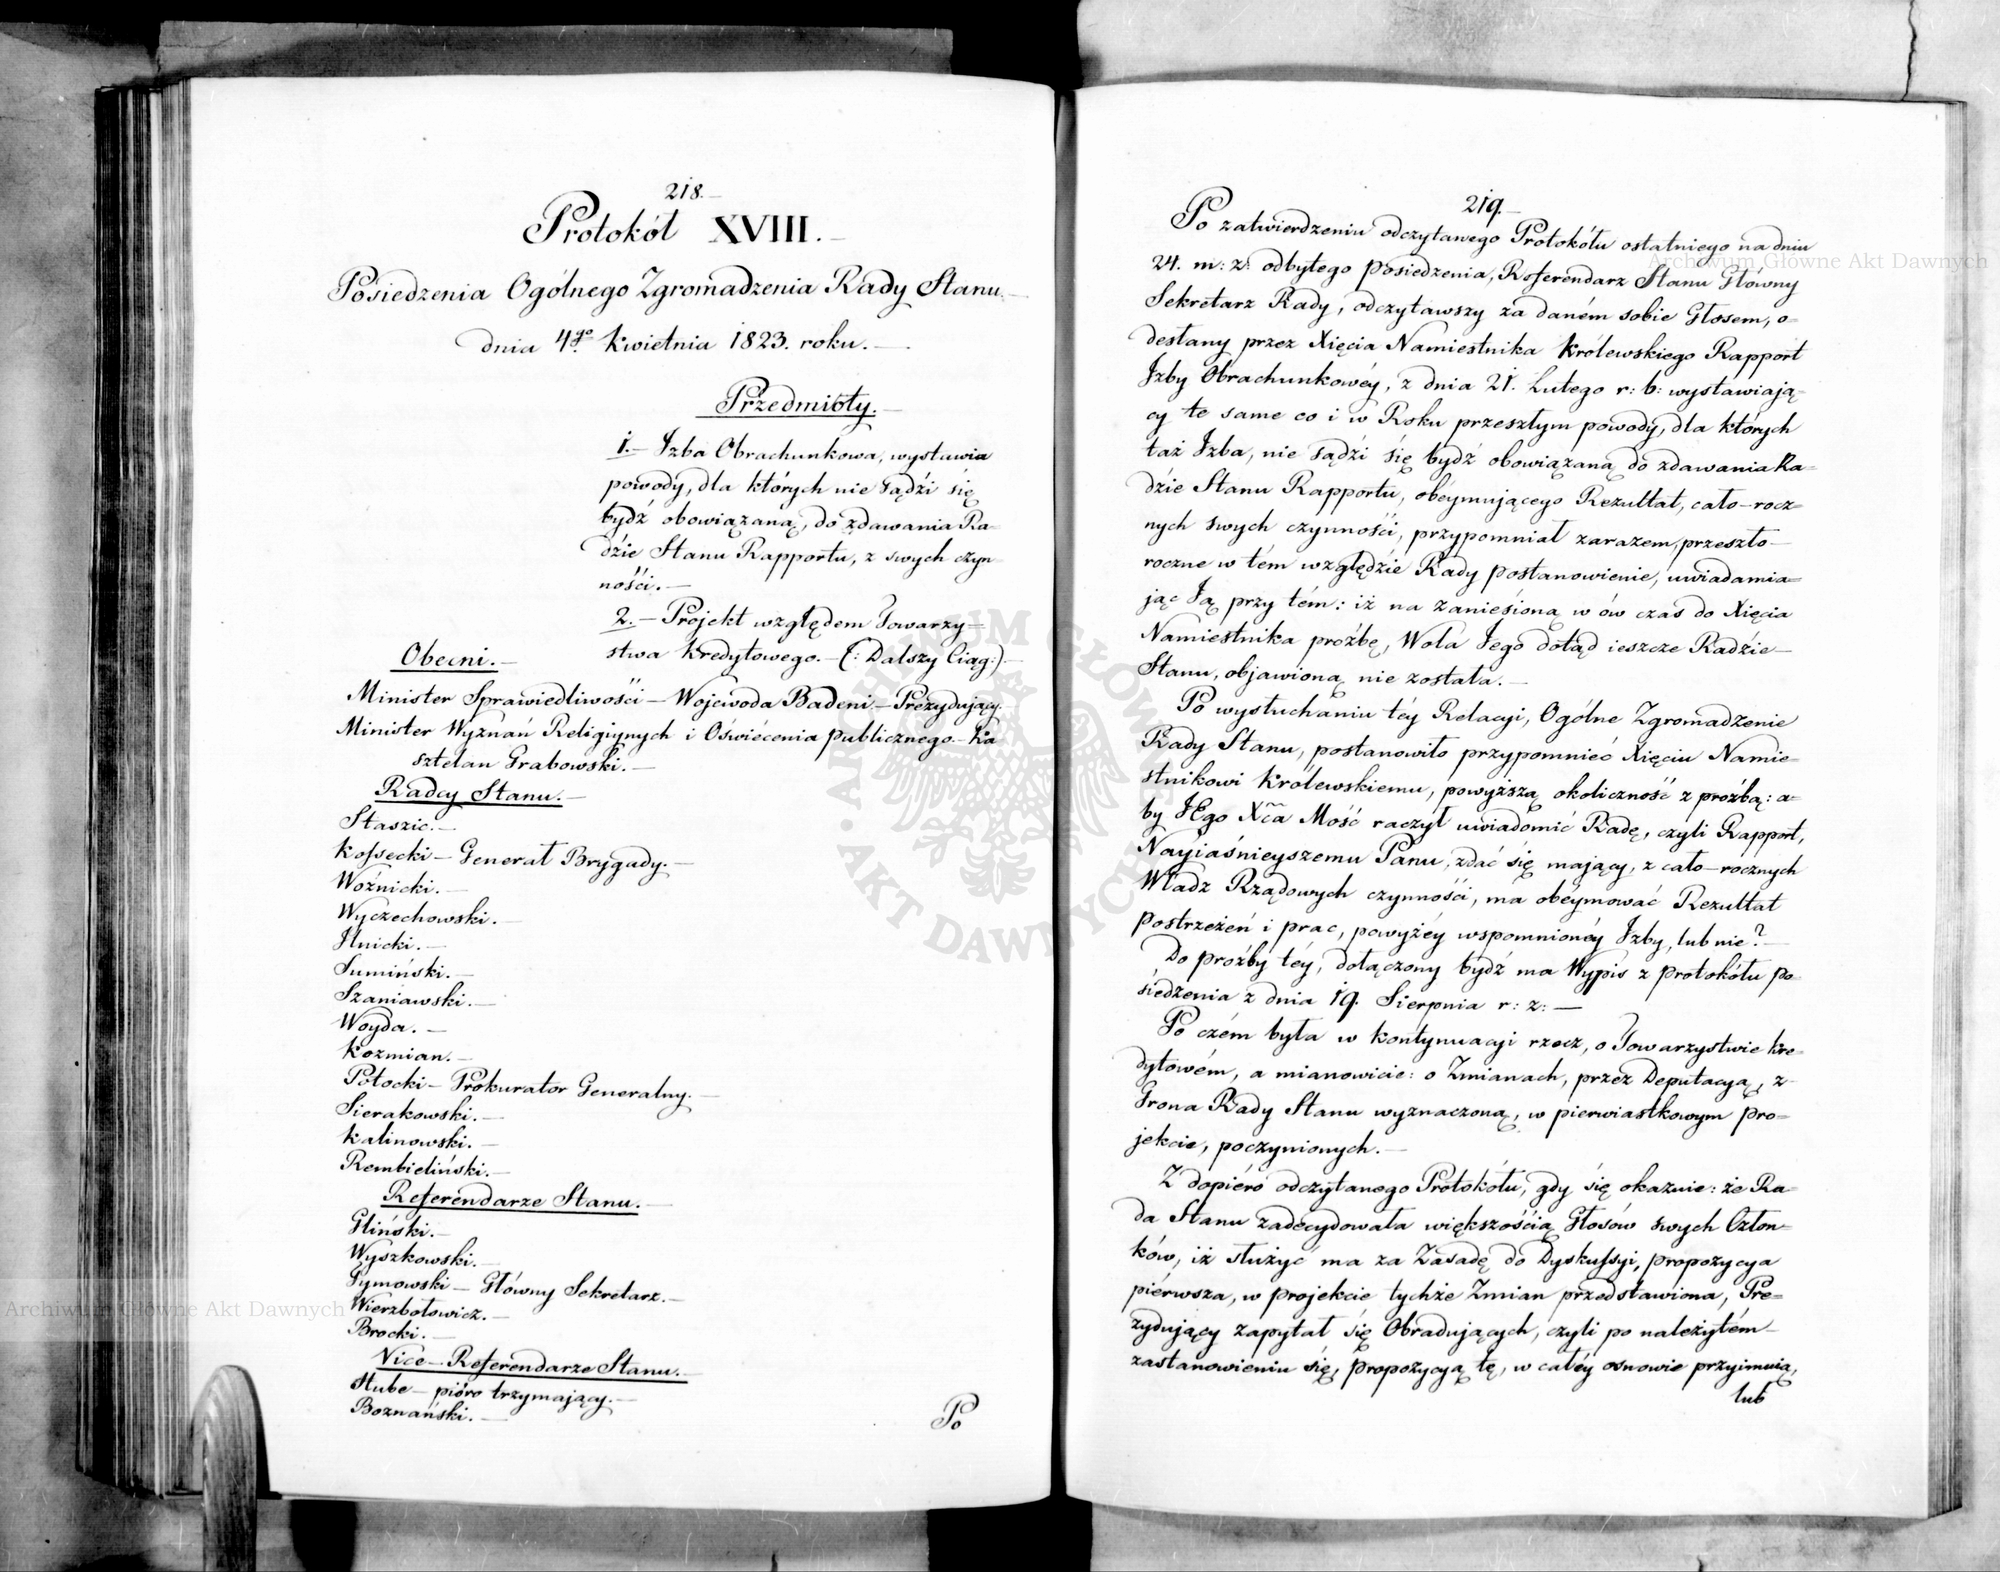 218.
Protokół XVIII.
Posiedzenia Ogólnego Zgromadzenia Rady Stanu.
dnia 4go Kwietnia 1823. roku.
Przedmioty.
1. Izba Obrachunkowa, wystawia
powody, dla których nie sądzi się
bydź obowiązaną, do zdawania Ra-
dzie Stanu Rapportu, z swych czyn-
ności.
2. Projekt względem Towarzy=
stwa Kredytowego. (: Dalszy Ciąg:)
Obecni.
Minister Sprawiedliwości - Wojewoda Badeni - Prezydujący.
Minister Wyznań Religiynych i Oświécenia publicznego - Ka
sztelan Grabowski.
Radcy Stanu.
Staszic.
Kossecki - Generał Brygady.
Woźnicki.
Wyczechowski.
Ilnicki.
Sumiński.
Szaniawski.
Woyda.
Kozmian.
Potocki - Prokurator Generalny.
Sierakowski.
Kalinowski.
Rembieliński.
Referendarze Stanu.
Gliński.
Wyszkowski.
Tymowski - Główny Sekretarz.
Wierzbołowicz.
Brocki.
Vice-Referendarze Stanu.
Hube - pióro trzymający.
Boznański.
Po
219.
Po zatwierdzeniu odczytanego Protokółu ostatniego na dniu
24. m: z: odbytego posiedzenia, Referendarz Stanu Główny
Sekretarz Rady, odczytawszy za daném sobie Głosem, o=
desłany przez Xięcia Namiestnika Królewskiego Rapport
Izby Obrachunkowéy, z dnia 21. Lutego r: b: wystawiają=
cy te same co i w Roku przeszłym powody, dla których
taż Izba, nie sądzi się bydź obowiązaną do zdawania Ra=
dzie Stanu Rapportu, obeymującego Rezultat, cało-rocz=
nych swych czynności, przypomniał zarazem, przeszło-
roczne w tém względzie Rady postanowienie, uwiadamia=
jąc Ją przy tém: iż na zaniesioną w ów czas do Xięcia
Namiestnika proźbę, Wola Jego dotąd ieszcze Radzie-
Stanu, objawioną nie została.
Po wysłuchaniu téy Relacyi, Ogólne Zgromadzenie
Rady Stanu, postanowiło przypomnieć Xięciu Namie=
stnikowi Królewskiemu, powyższą okoliczność z proźbą: a=
by JEgo Xcca Mość raczył uwiadomić Radę, czyli Rapport,
Nayiaśnieyszemu Panu, zdać się mający, z cało-rocznych
Władz Rządowych czynności, ma obeymować Rezultat
postrzeżeń i prac, powyżéy wspomnionéy Izby, lub nie?
Do proźby téy, dołączony bydź ma Wypis z protokółu po=
siedzenia z dnia 19. Sierpnia r: z:
Po czém była w kontynuacyi rzecz, o Towarzystwie Kre=
dytowém, a mianowicie: o Zmianach, przez Deputacyą, z-
Grona Rady Stanu wyznaczoną, w pierwiastkowym pro=
jekcie, poczynionych.
Z dopiéro odczytanego Protokółu, gdy się okazuie: że Ra=
da Stanu zadecydowała większością Głosów swych Człon=
ków, iż służyć ma za Zasadę do Dyskussyi, propozycya
piérwsza, w projekcie tychże Zmian przedstawiona, Pre=
zydujący zapytał się Obradujących, czyli po należytém
zastanowieniu się, propozycyą tę, w całéy osnowie przyimuią,
lub
Archiwum Główne Akt Dawnych
Archiwum Główne Akt Dawnych
ARCHIWUM GŁÓWNE • AKT DAWNYCH •